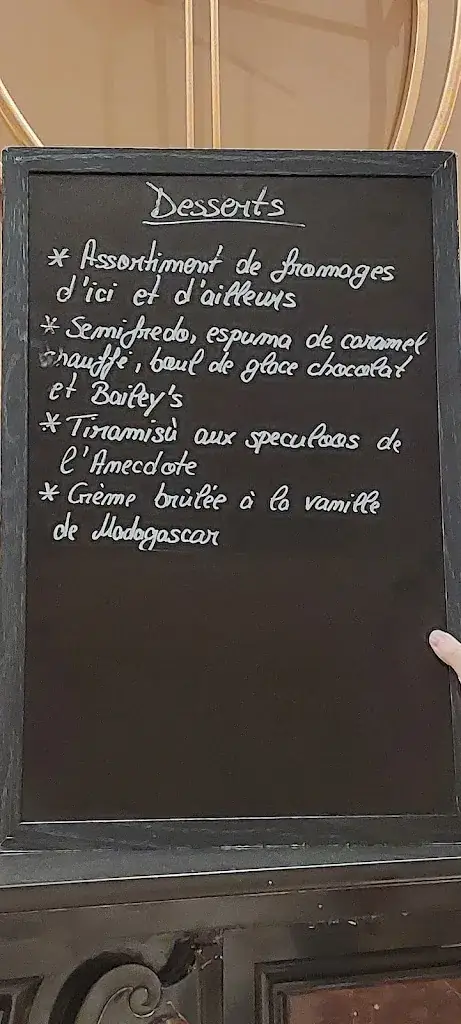 Desserts
* Assortiment de fromages
d'ici et d'ailleurs
* Semifredo, espuma de caramel
chauffé, boul de glace chocolat
et Bailey's
* Tiramisù aux speculoos de
l'Anecdote
* Crème brûlée à la vanille
de Madagascar